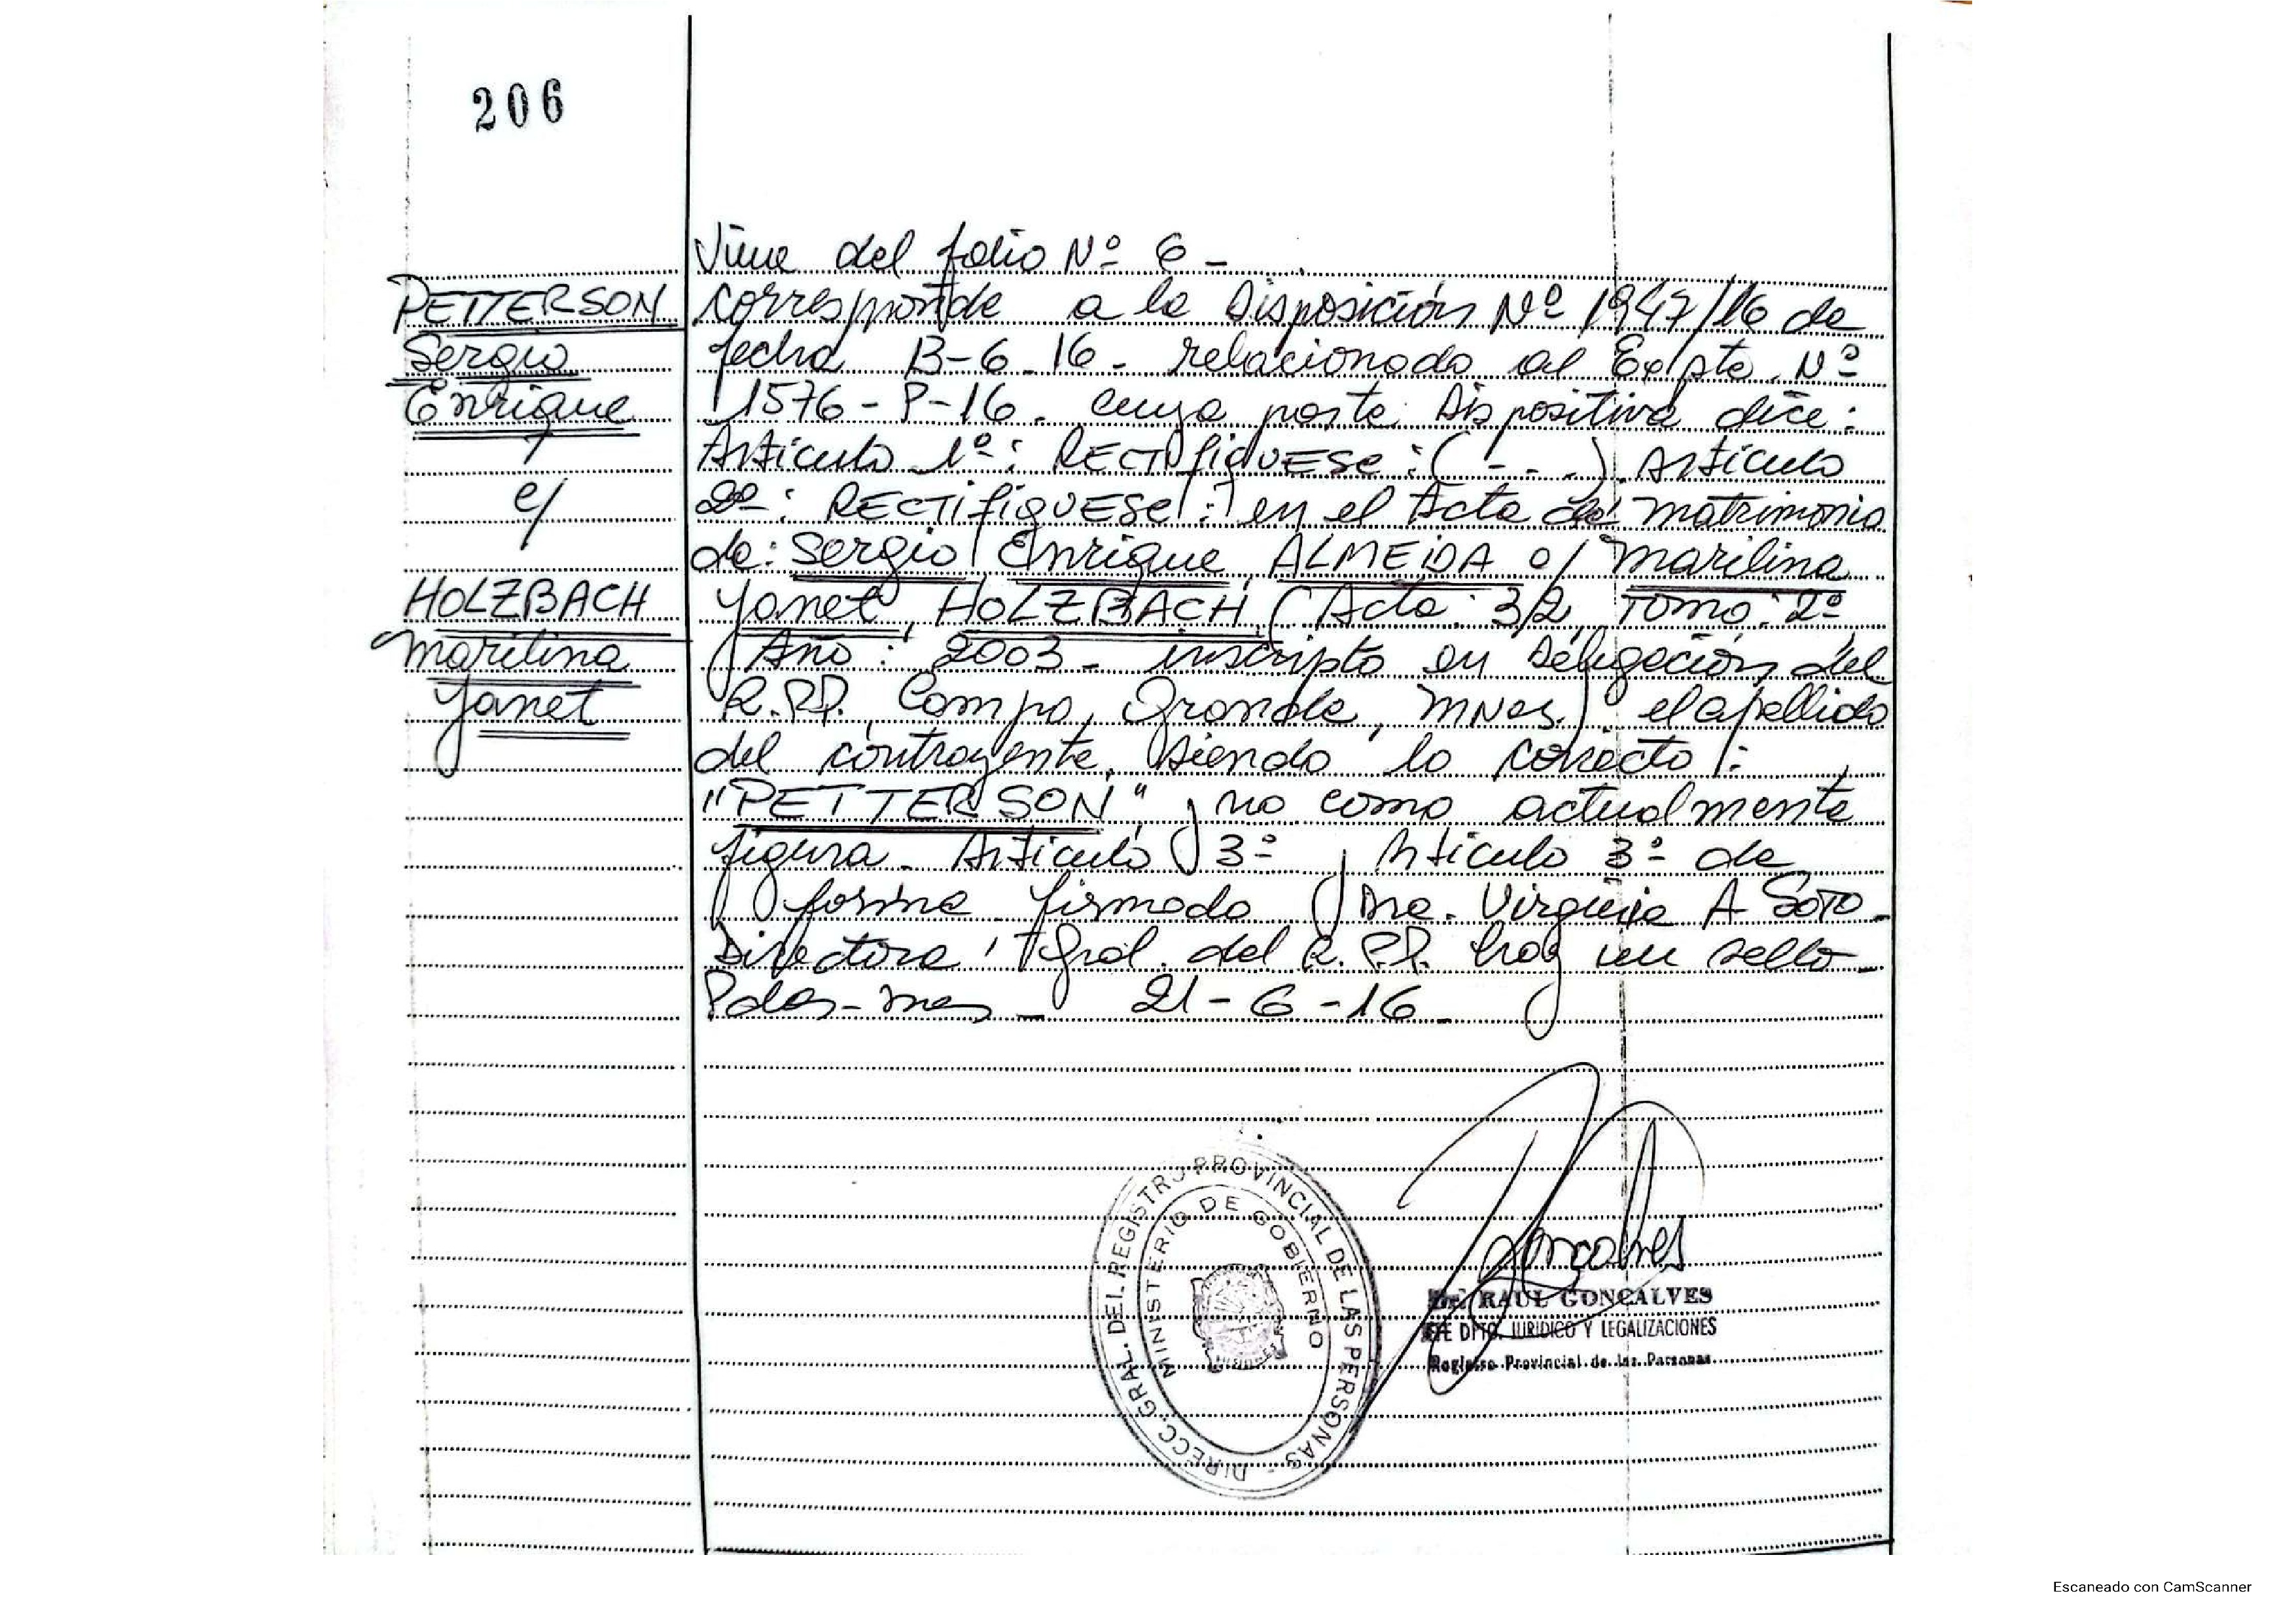 206
Viene del folio Nº 6 -
PETTERSON
Sergio
Enrique
c/
HOLZBACH
Marilina
Yanet
corresponde a la Disposición Nº 1947/16 de
fecha 13-6-16- relacionado al Expte. Nº
1576-P-16. cuya parte Dispositiva dice:
Artículo 1º: RECTIFIQUESE: (---) Artículo
2º: RECTIFIQUESE: en el Acta de Matrimonio
de: Sergio Enrique ALMEIDA c/ Marilina
Yanet HOLZBACH (Acta: 32, Tomo: 2º
Año: 2003- inscripto en Delegación del
R.P.P. Campo Grande, Mnes) el apellido
del contrayente, siendo lo correcto:
"PETTERSON" y no como actualmente
figura. Artículo 3º y Artículo 3º de
forma firmado Dra. Virginia A Soto-
Directora Gral. del R.P.P. hay un sello-
Pdas-mnes- 21-6-16-
DIRECC. GRAL. DEL REGISTRO PROVINCIAL DE LAS PERSONAS -
MINISTERIO DE GOBIERNO
MISIONES
Goncalves
RAUL GONCALVES
JEFE DPTO. JURIDICO Y LEGALIZACIONES
Registro Provincial de las Personas
Escaneado con CamScanner